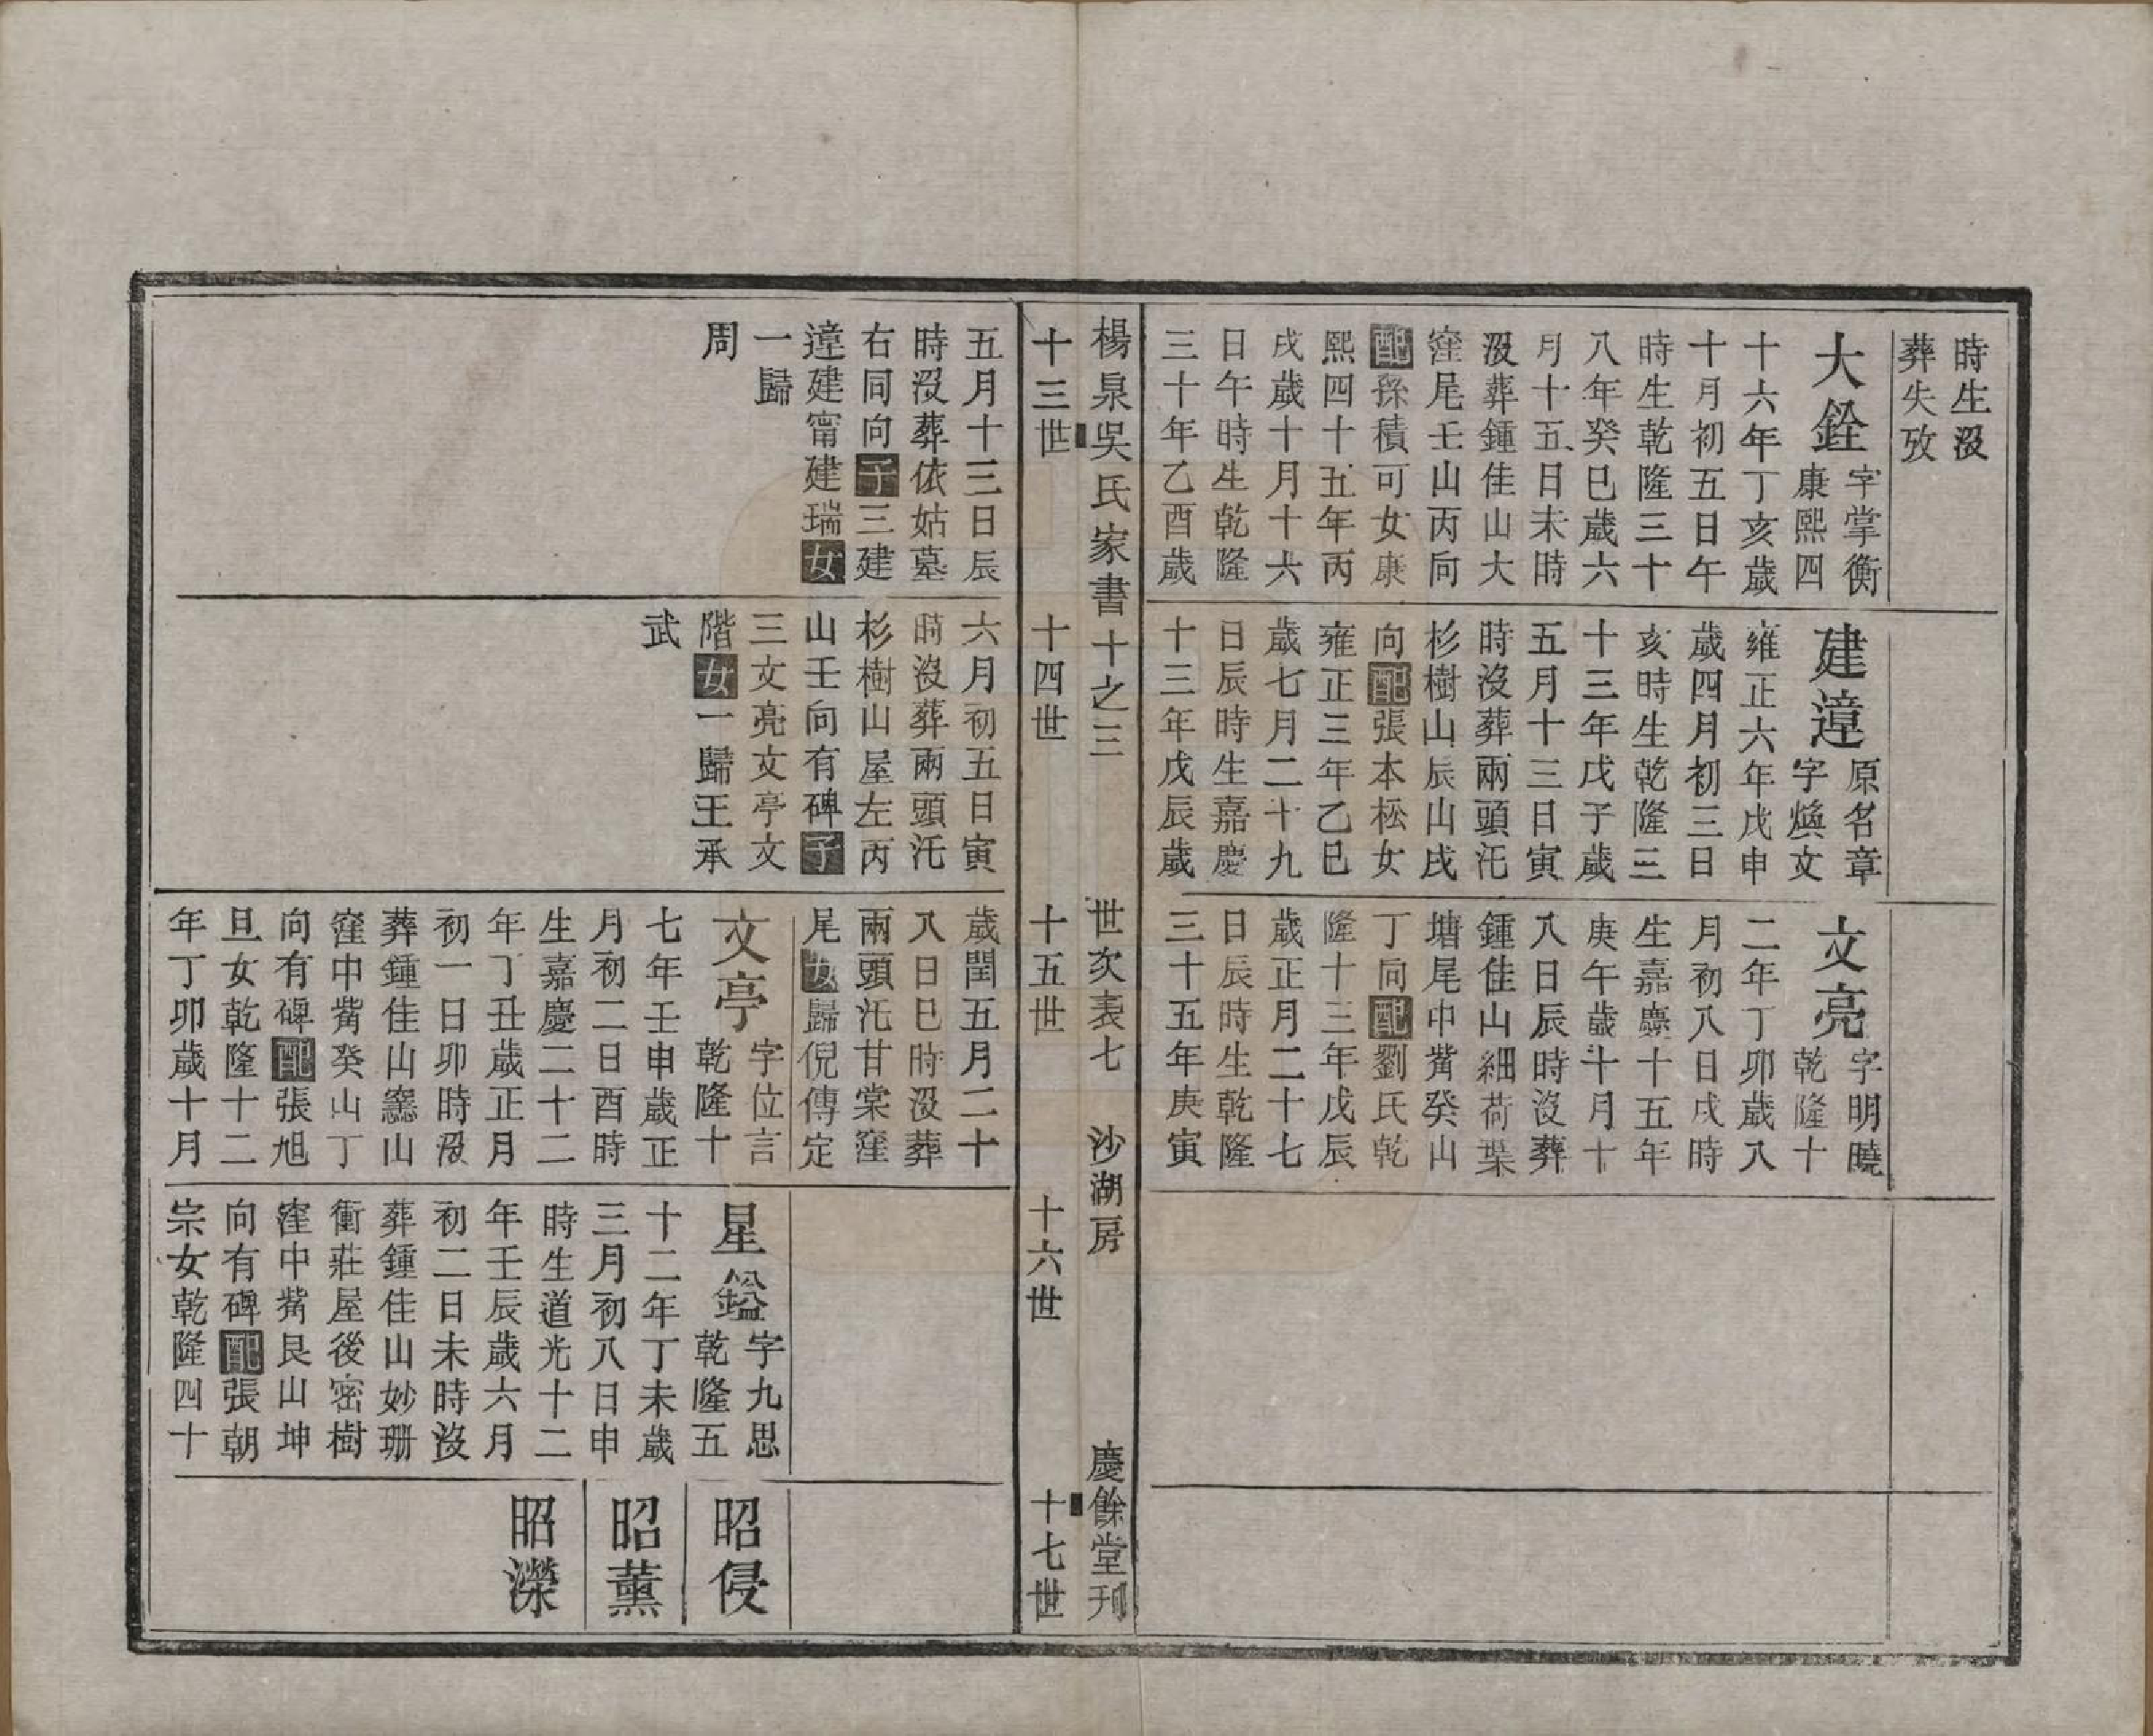 時生沒
葬失攷
大銓
字掌衡
康熙四
十六年丁亥歲
十月初五日午
時生乾隆三十
八年癸巳歲六
月十五日未時
沒葬鍾佳山大
窪尾壬山丙向
配孫積可女康
熙四十五年丙
戌歲十月十六
日午時生乾隆
三十年乙酉歲
建漳
原名章
字煥文
雍正六年戊申
歲四月初三日
亥時生乾隆三
十三年戊子歲
五月十三日寅
時沒葬兩頭汑
杉樹山辰山戌
向配張本松女
雍正三年乙巳
歲七月二十九
日辰時生嘉慶
十三年戊辰歲
文亮
字明曉
乾隆十
二年丁卯歲八
月初八日戌時
生嘉慶十五年
庚午歲十月十
八日辰時沒葬
鍾佳山細荷葉
塘尾中觜癸山
丁向配劉氏乾
隆十三年戊辰
歲正月二十七
日辰時生乾隆
三十五年庚寅
楊泉吳氏家書十之三 世次表七 沙湖房 慶餘堂刊
十三世 十四世 十五世 十六世 十七世
五月十三日辰
時沒葬依姑墓
右同向子三建
漳建甯建瑞女
一歸
周
六月初五日寅
時沒葬兩頭汑
杉樹山屋左丙
山壬向有碑子
三文亮文亭文
階女一歸王承
武
歲閏五月二十
八日巳時沒葬
兩頭汑甘棠窪
尾女歸倪傳定
文亭
字位言
乾隆十
七年壬申歲正
月初二日酉時
生嘉慶二十二
年丁丑歲正月
初一日卯時沒
葬鍾佳山窰山
窪中觜癸山丁
向有碑配張旭
旦女乾隆十二
年丁卯歲十月
星鎰
字九思
乾隆五
十二年丁未歲
三月初八日申
時生道光十二
年壬辰歲六月
初二日未時沒
葬鍾佳山妙珊
衝莊屋後密樹
窪中觜艮山坤
向有碑配張朝
宗女乾隆四十
昭侵
昭薰
昭濼